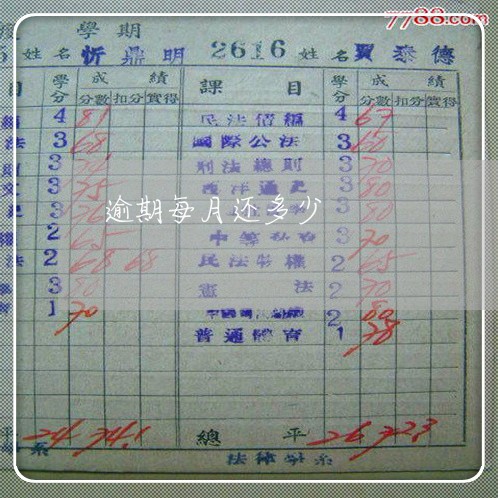 7788.com
學期
姓名 忻鼎明 2616 姓名 賈泰德
目 學分 成績 課目 學分 成績
分數 扣分 實得 分數 扣分 實得
4 81 民法債編 4 67
法 3 68 國際公法 3 60
3 刑法總則 3 70
3 75 西洋通史 3 80
3 3 80
逾期每月还多少
2 65 3 70
法 2 68 68 民法物權 2 65
3 80 憲法 2 70
1 70 2 80
普通體育 1 78
平 24 74.1 總平 26 72.3
系 法律學系